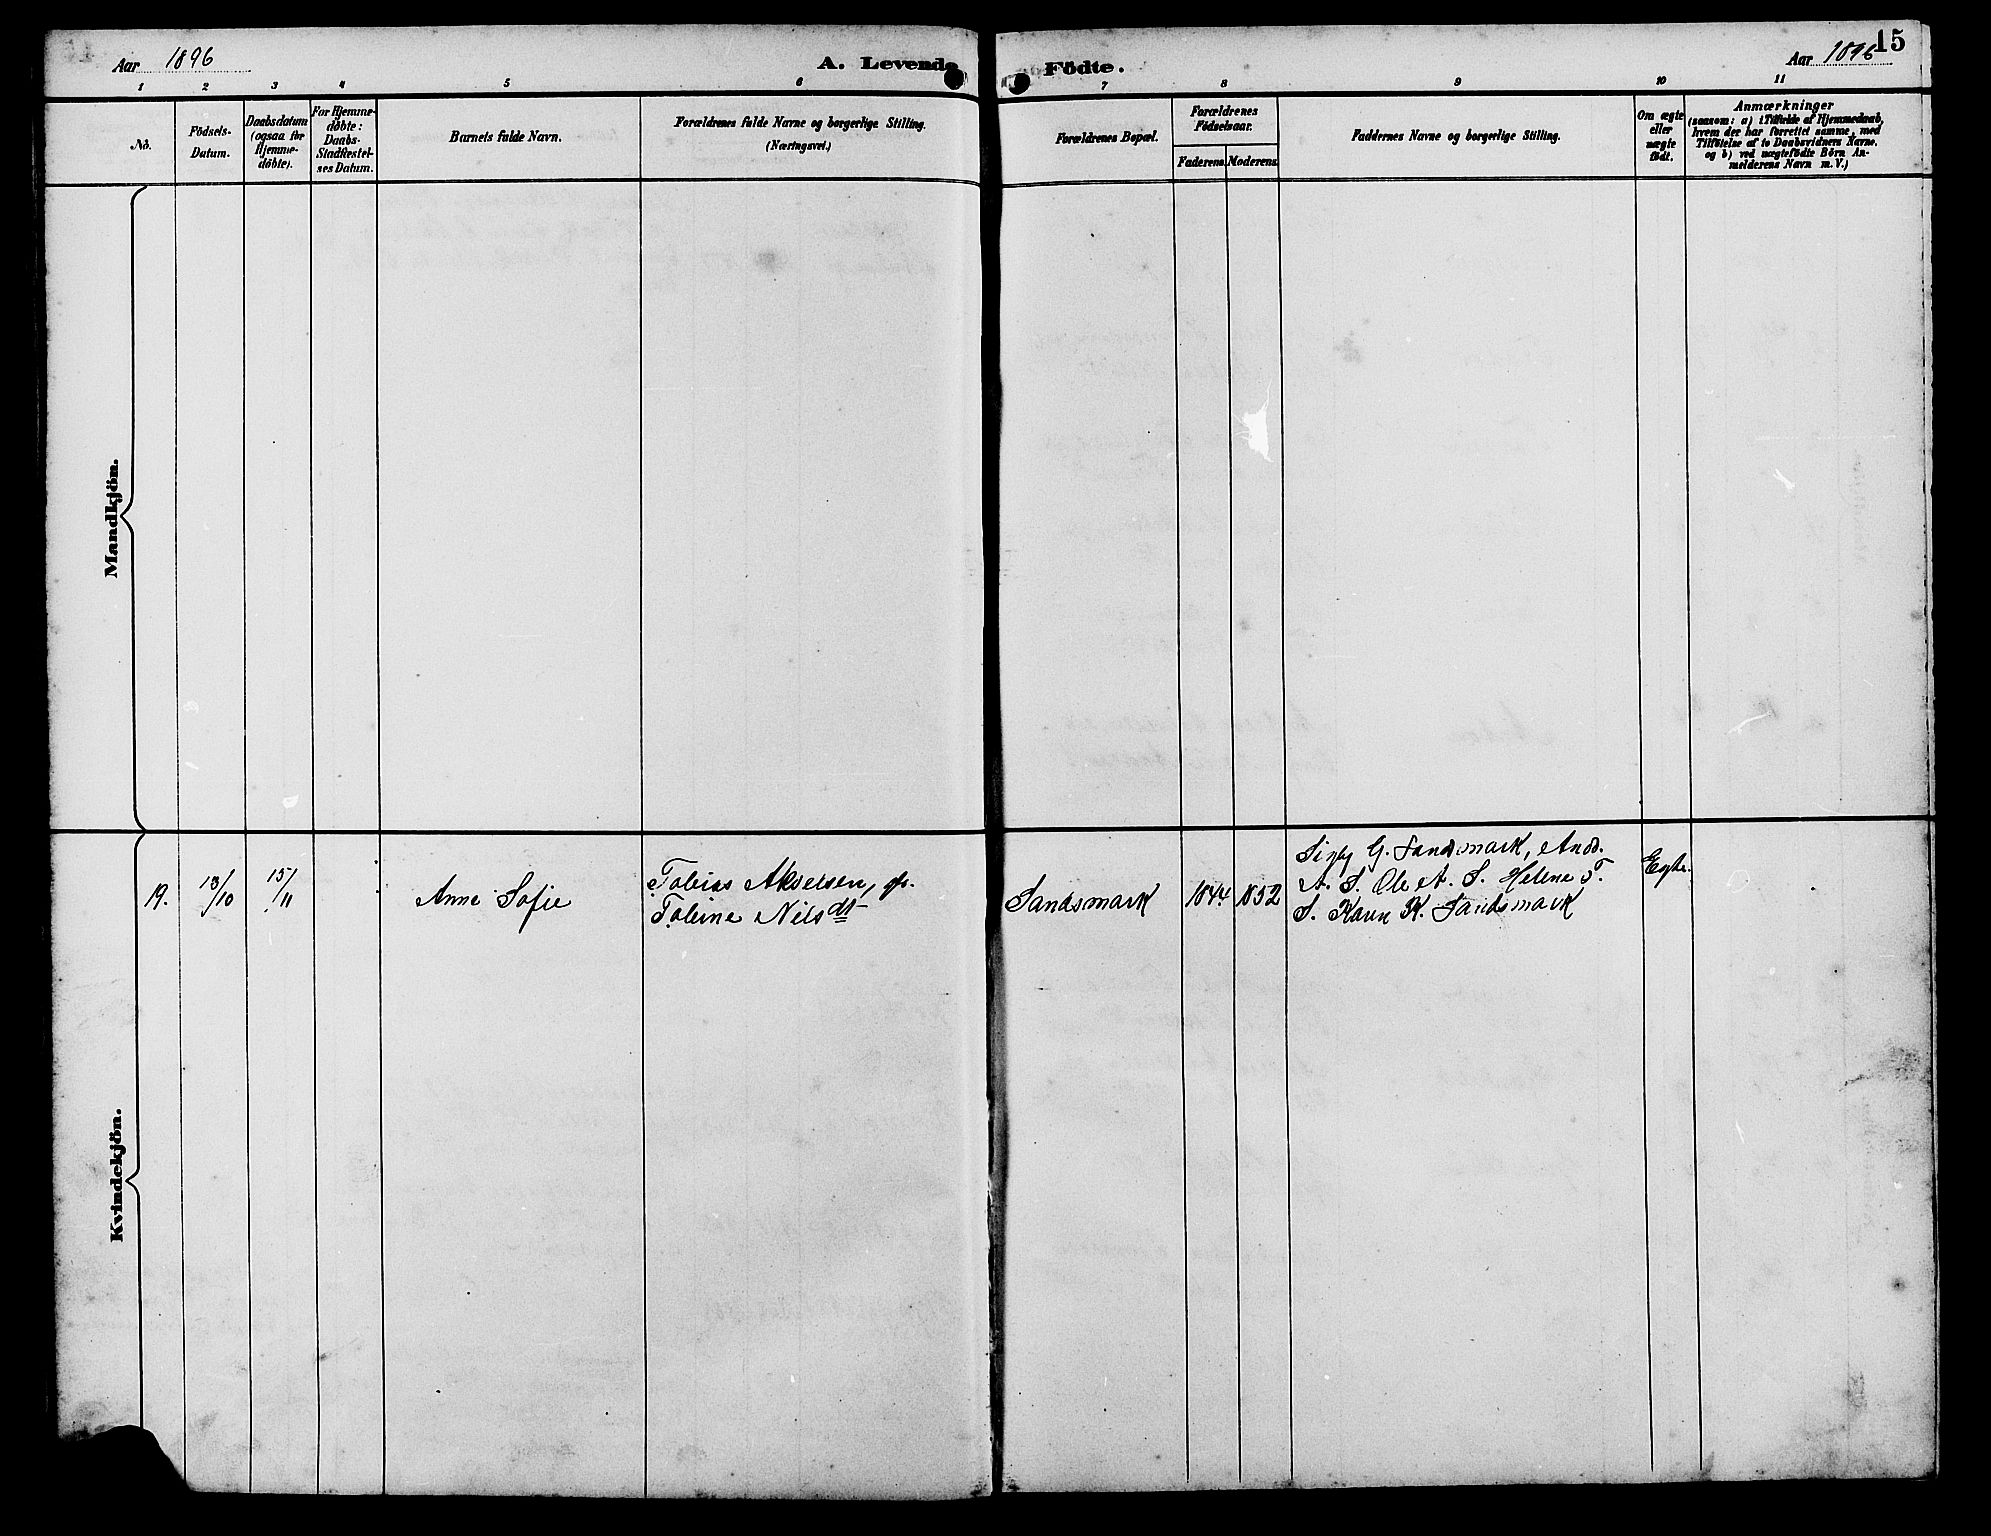 15
Aar 1896
A. Levende Födte.
Aar 1896
1 2 3 4 5 6 7 8 9 10 11
No.
Födsels-
Datum.
Daabsdatum
(ogsaa for
Hjemme-
döbte).
For Hjemme-
döbte:
Daabs-
Stadfæstel-
ses Datum.
Barnets fulde Navn.
Forældrenes fulde Navne og borgerlige Stilling.
(Næringsvei.)
Forældrenes Bopæl.
Forældrenes
Födselsaar.
Faderens. Moderens.
Faddernes Navne og borgerlige Stilling.
Om ægte
eller
uægte
født.
Anmærkninger
(saasom: a) i Tilfælde af Hjemmedaab,
hvem der har forrettet samme, med
Tilföielse af to Daabsvidners Navne,
og b) ved uægtefödte Börn An-
melderens Navn m. V.)
Mandkjön.
Kvindekjön.
19.
13/10
15/11
Anne Sofie
Tobias Akselsen, gbr.
Tobine Nilsdt
Sandsmark
1844
1852
G. Sandsmark, And.
A. S. Ole A. S. Helene T.
S. Karen K. Sandsmark
Egte.